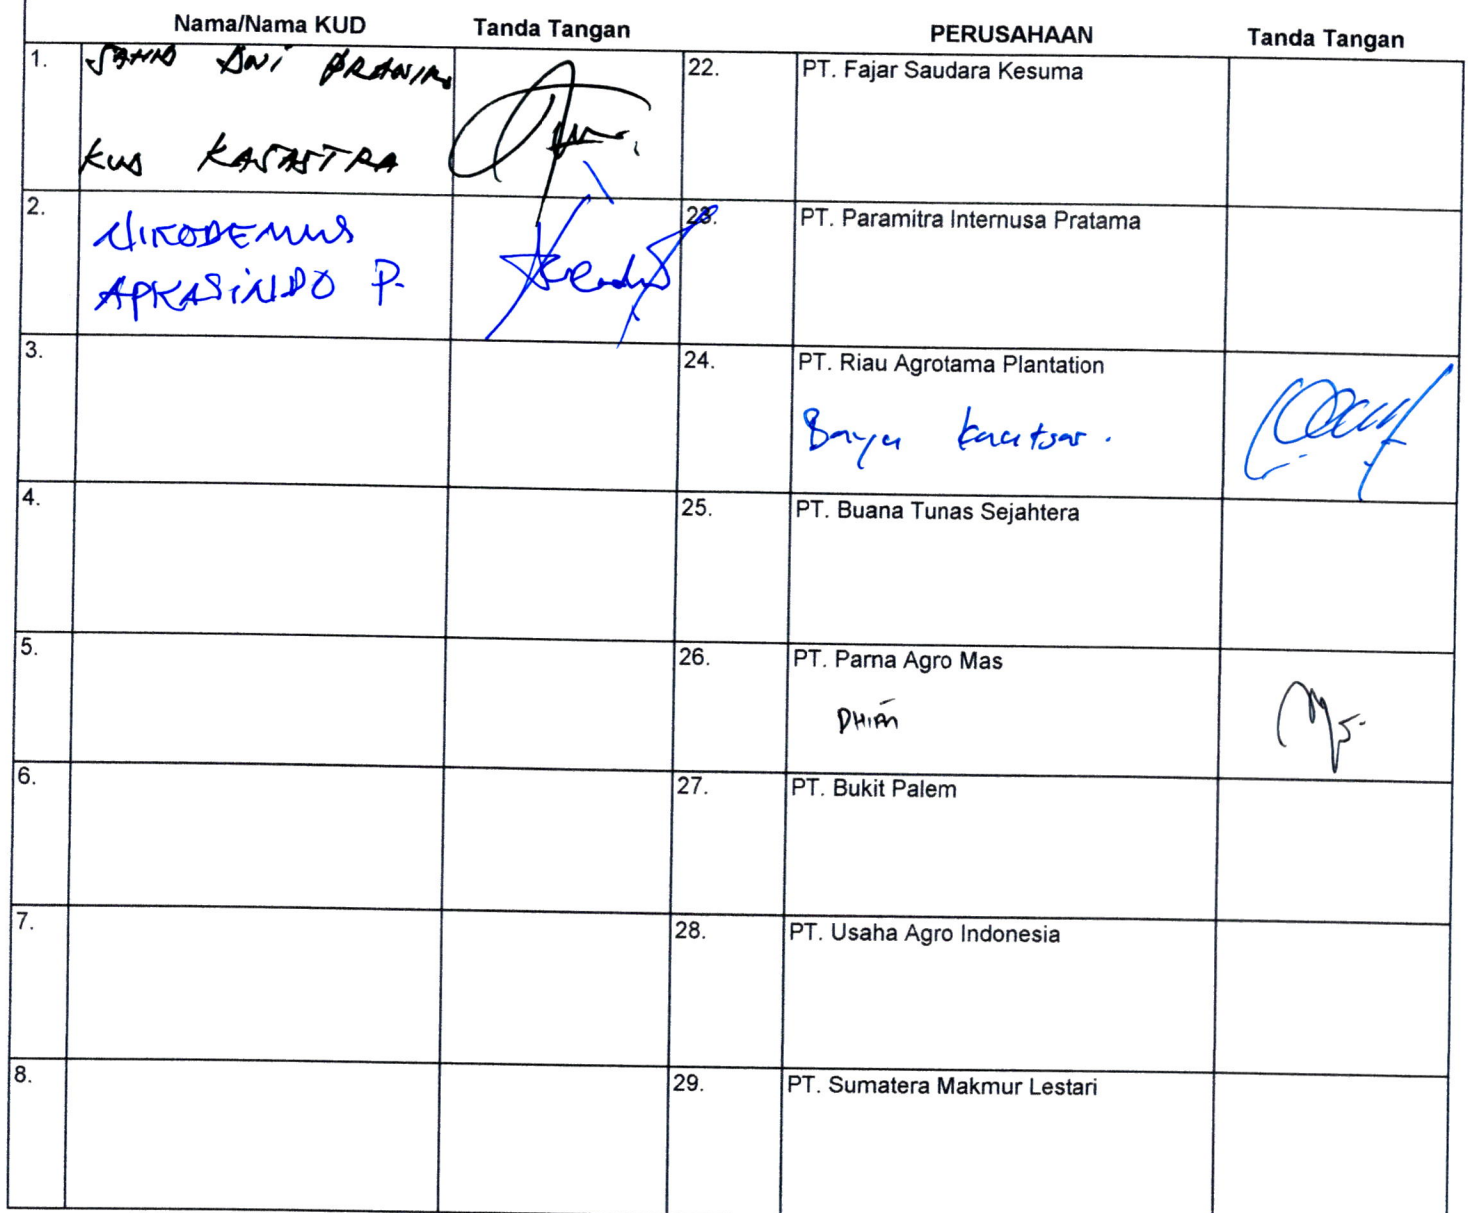 Nama/Nama KUD Tanda Tangan PERUSAHAAN Tanda Tangan
1.
KUD KASASTRA
22. PT. Fajar Saudara Kesuma
2. NIKODEMUS
APKASINDO P.
23. PT. Paramitra Internusa Pratama
3.
24. PT. Riau Agrotama Plantation
Bayu Kautsar.
4.
25. PT. Buana Tunas Sejahtera
5.
26. PT. Parna Agro Mas
DHIAN
6.
27. PT. Bukit Palem
7.
28. PT. Usaha Agro Indonesia
8.
29. PT. Sumatera Makmur Lestari